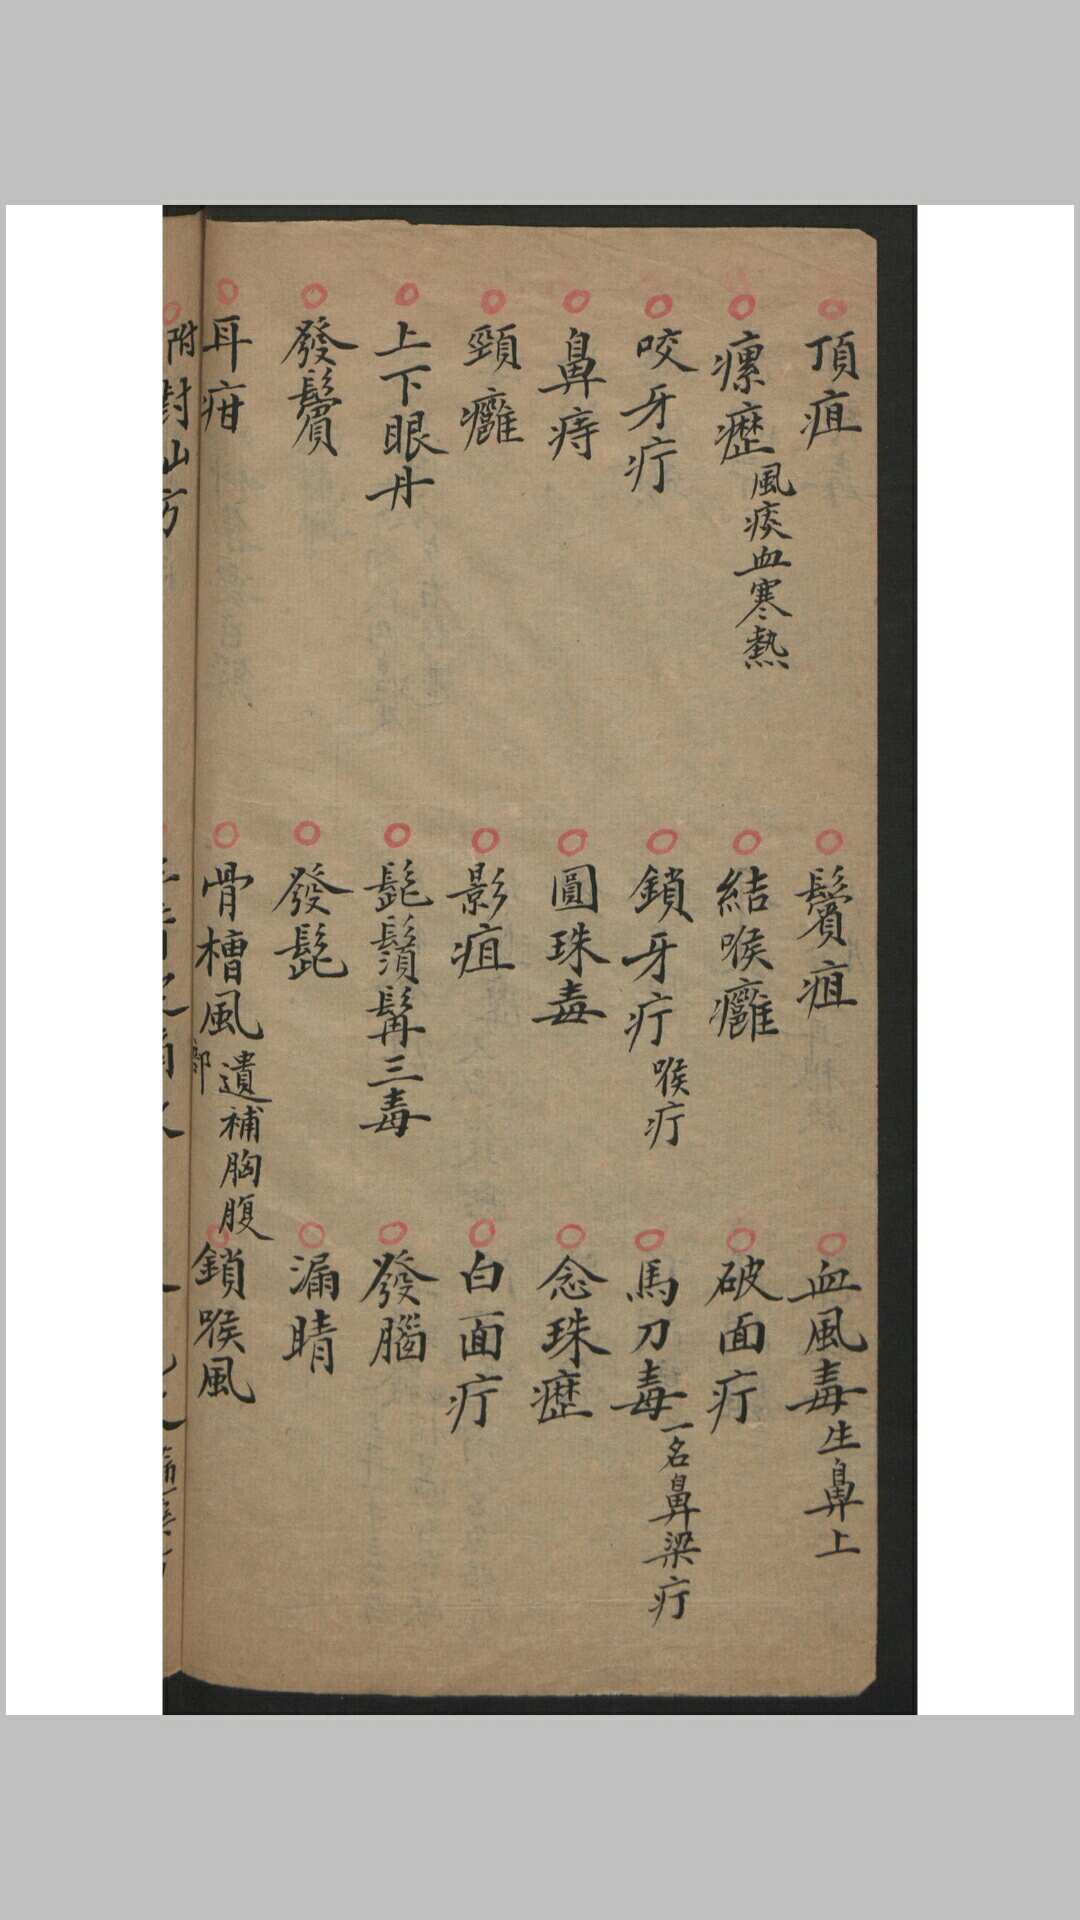 頂疽　鬢疽　血風毒生鼻上
瘰癧風痰血寒熱　結喉癰　破面疔
咬牙疔　鎖牙疔喉疔　馬刀毒一名鼻梁疔
鼻痔　圓珠毒　念珠癧
頸癰　影疽　白面疔
上下眼丹　髭鬚髯三毒　發腦
發鬢　發髭　漏睛
耳疳　骨槽風遺補胸腹　鎖喉風
附對山方